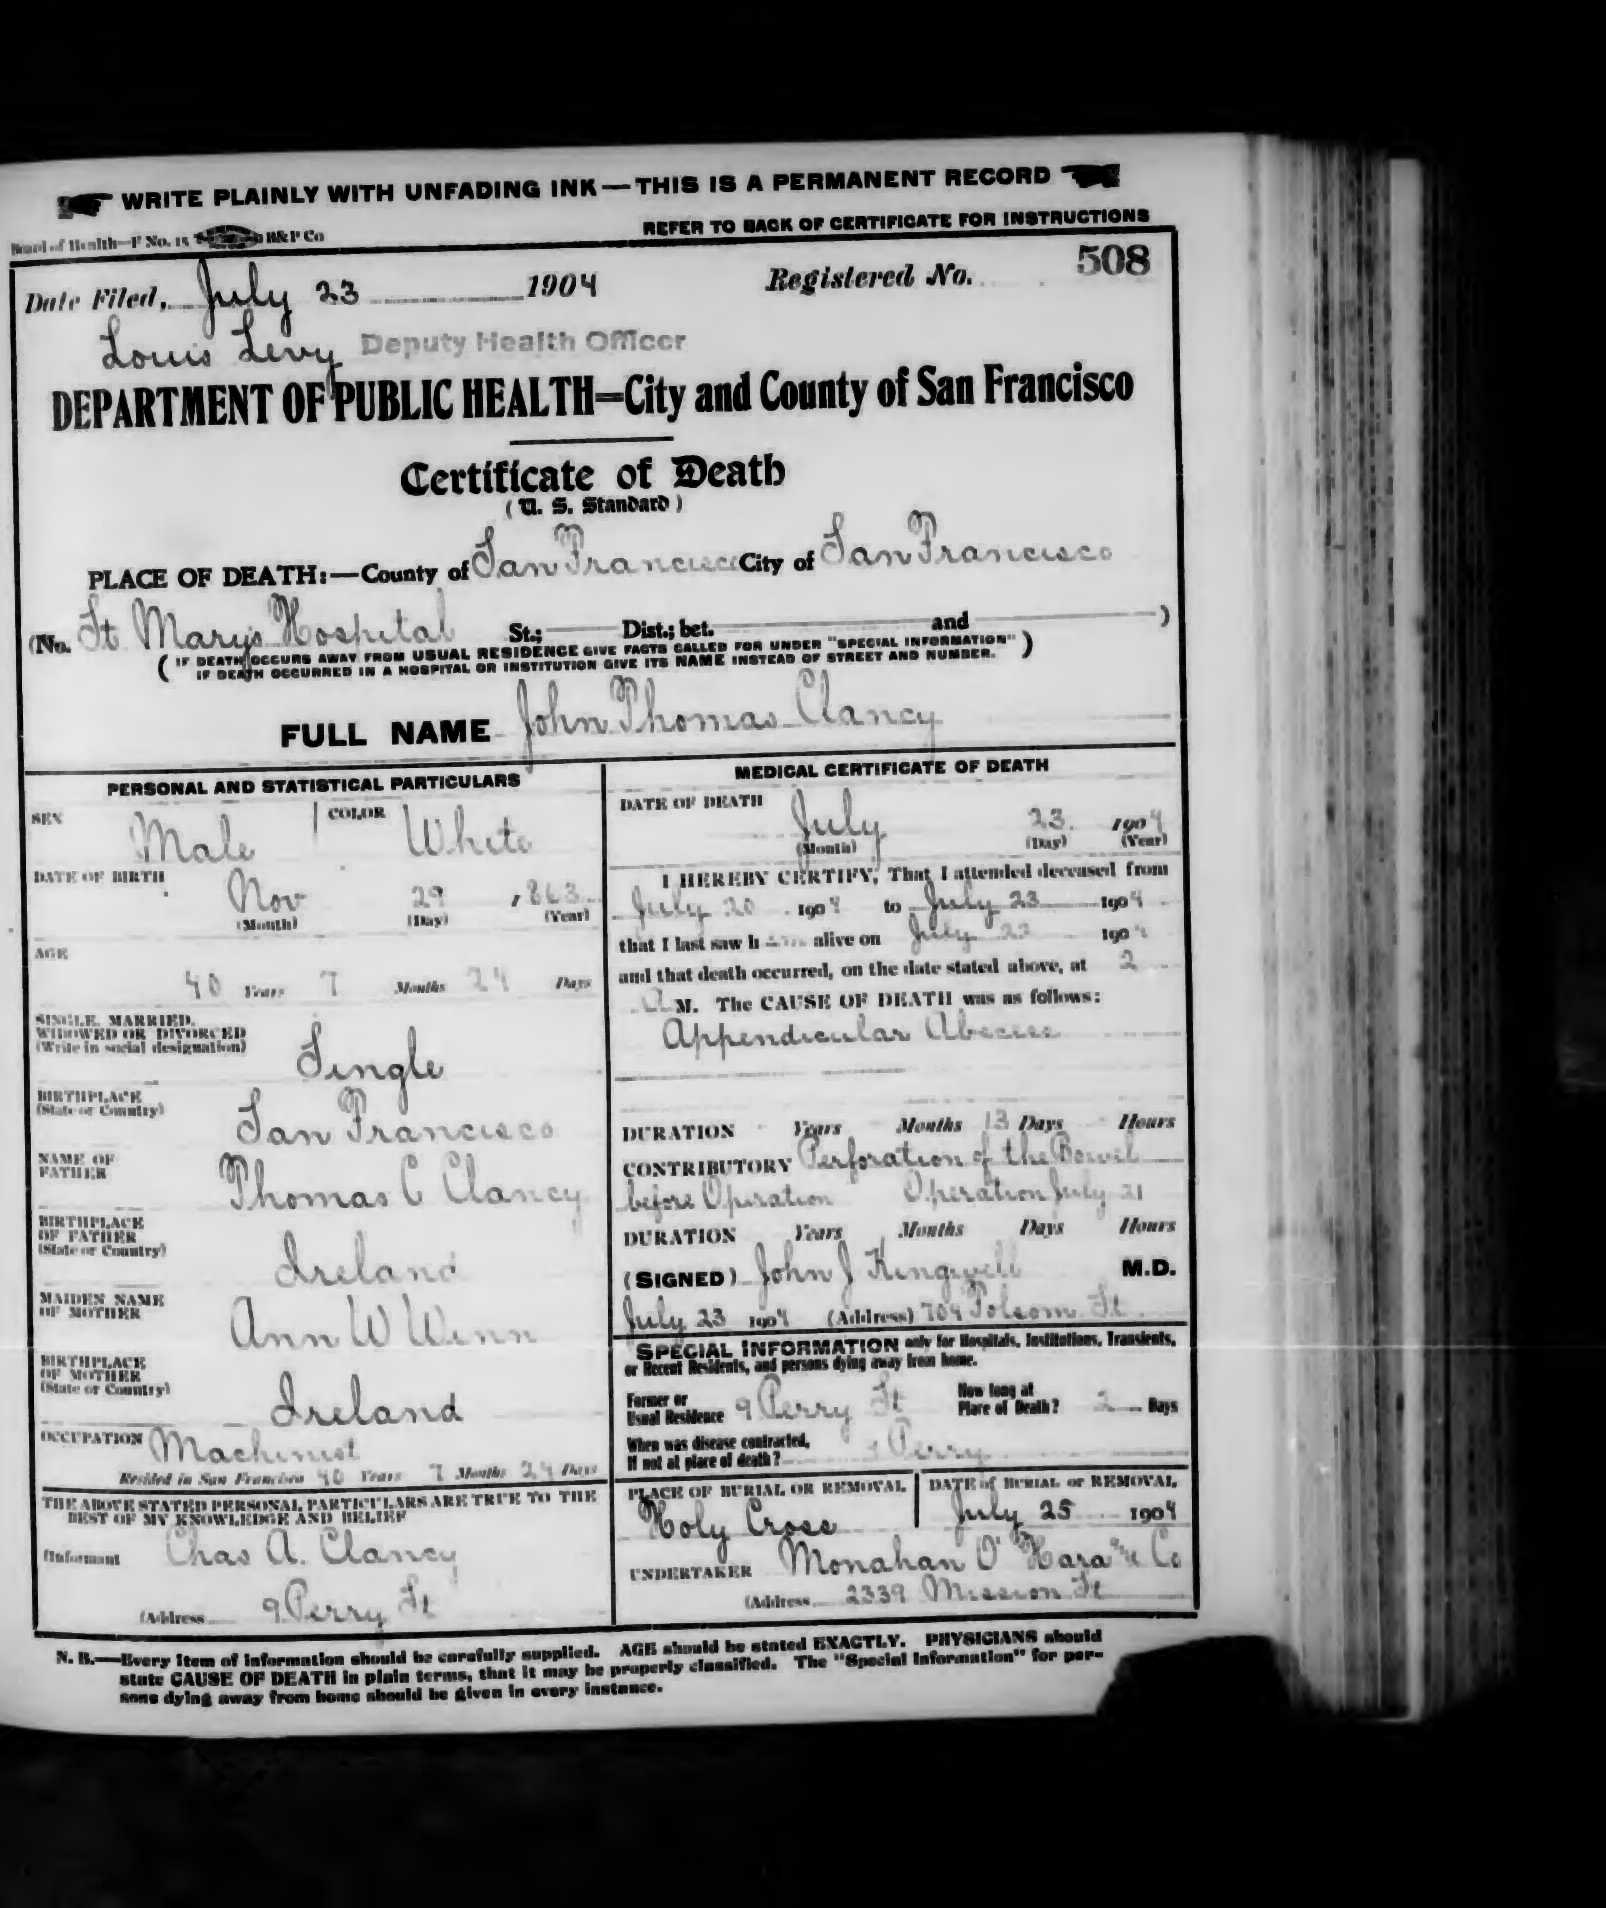 WRITE PLAINLY WITH UNFADING INK—THIS IS A PERMANENT RECORD
Board of Health—F No. 15 H&P Co REFER TO BACK OF CERTIFICATE FOR INSTRUCTIONS
Date Filed, July 23 1904 Registered No. 508
Louis Levy Deputy Health Officer
DEPARTMENT OF PUBLIC HEALTH=City and County of San Francisco
Certificate of Death
(U. S. Standard)
PLACE OF DEATH:—County of San Francisco City of San Francisco
(No. St Mary's Hospital St.; Dist.; bet. and )
( IF DEATH OCCURS AWAY FROM USUAL RESIDENCE GIVE FACTS CALLED FOR UNDER "SPECIAL INFORMATION" )
IF DEATH OCCURRED IN A HOSPITAL OR INSTITUTION GIVE ITS NAME INSTEAD OF STREET AND NUMBER.
FULL NAME John Thomas Clancy
PERSONAL AND STATISTICAL PARTICULARS
SEX Male COLOR White
DATE OF BIRTH Nov 29, 1863
(Month) (Day) (Year)
AGE
40 Years 7 Months 24 Days
SINGLE, MARRIED,
WIDOWED OR DIVORCED
(Write in social designation) Single
BIRTHPLACE
(State or Country) San Francisco
NAME OF
FATHER Thomas C Clancy
BIRTHPLACE
OF FATHER
(State or Country) Ireland
MAIDEN NAME
OF MOTHER Ann W Winn
BIRTHPLACE
OF MOTHER
(State or Country) Ireland
OCCUPATION Machinist
Resided in San Francisco 40 Years 7 Months 24 Days
THE ABOVE STATED PERSONAL PARTICULARS ARE TRUE TO THE
BEST OF MY KNOWLEDGE AND BELIEF
(Informant Chas A. Clancy
(Address 9 Perry St
MEDICAL CERTIFICATE OF DEATH
DATE OF DEATH
July 23 1904
(Month) (Day) (Year)
I HEREBY CERTIFY, That I attended deceased from
July 20 1904 to July 23 1904
that I last saw him alive on July 22 1904
and that death occurred, on the date stated above, at 2
A M. The CAUSE OF DEATH was as follows:
Appendicular Abscess
DURATION Years Months 13 Days Hours
CONTRIBUTORY Perforation of the Bowel
before Operation Operation July 21
DURATION Years Months Days Hours
(SIGNED) John J Kingwell M.D.
July 23 1904 (Address) 704 Folsom St
SPECIAL INFORMATION only for Hospitals, Institutions, Transients,
or Recent Residents, and persons dying away from home.
Former or
Usual Residence 9 Perry St How long at
Place of Death? 2 Days
When was disease contracted,
If not at place of death? 9 Perry
PLACE OF BURIAL OR REMOVAL DATE of BURIAL or REMOVAL
Holy Cross July 25 1904
UNDERTAKER Monahan O'Hara & Co
(Address 2339 Mission St
N. B.—Every item of information should be carefully supplied. AGE should be stated EXACTLY. PHYSICIANS should
state CAUSE OF DEATH in plain terms, that it may be properly classified. The "Special Information" for per-
sons dying away from home should be given in every instance.